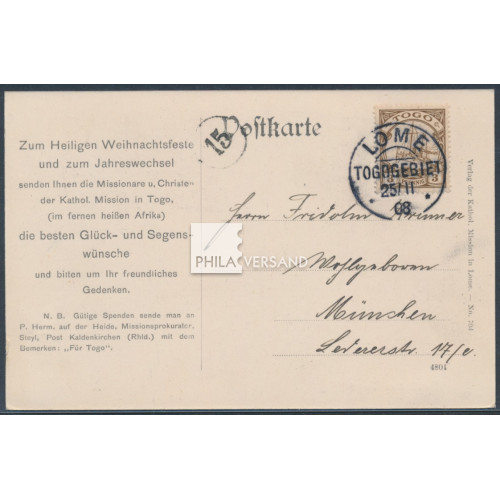 Postkarte
15
Zum Heiligen Weihnachtsfeste
und zum Jahreswechsel
senden Ihnen die Missionare u. Christen
der Kathol. Mission in Togo,
(im fernen heißen Afrika)
die besten Glück- und Segens-
wünsche
und bitten um Ihr freundliches
Gedenken.
N. B. Gütige Spenden sende man an
P. Herm. auf der Heide, Missionsprokurator,
Steyl, Post Kaldenkirchen (Rhld.) mit dem
Bemerken: „Für Togo".
TOGO
3
3
LOME
TOGOGEBIET
25/11
08
Herrn Fridolin
Wohlgeboren
München
Ledererstr. 17/0.
4804
Verlag der Kathol. Mission in Lome. — No. 704
PHILA VERSAND